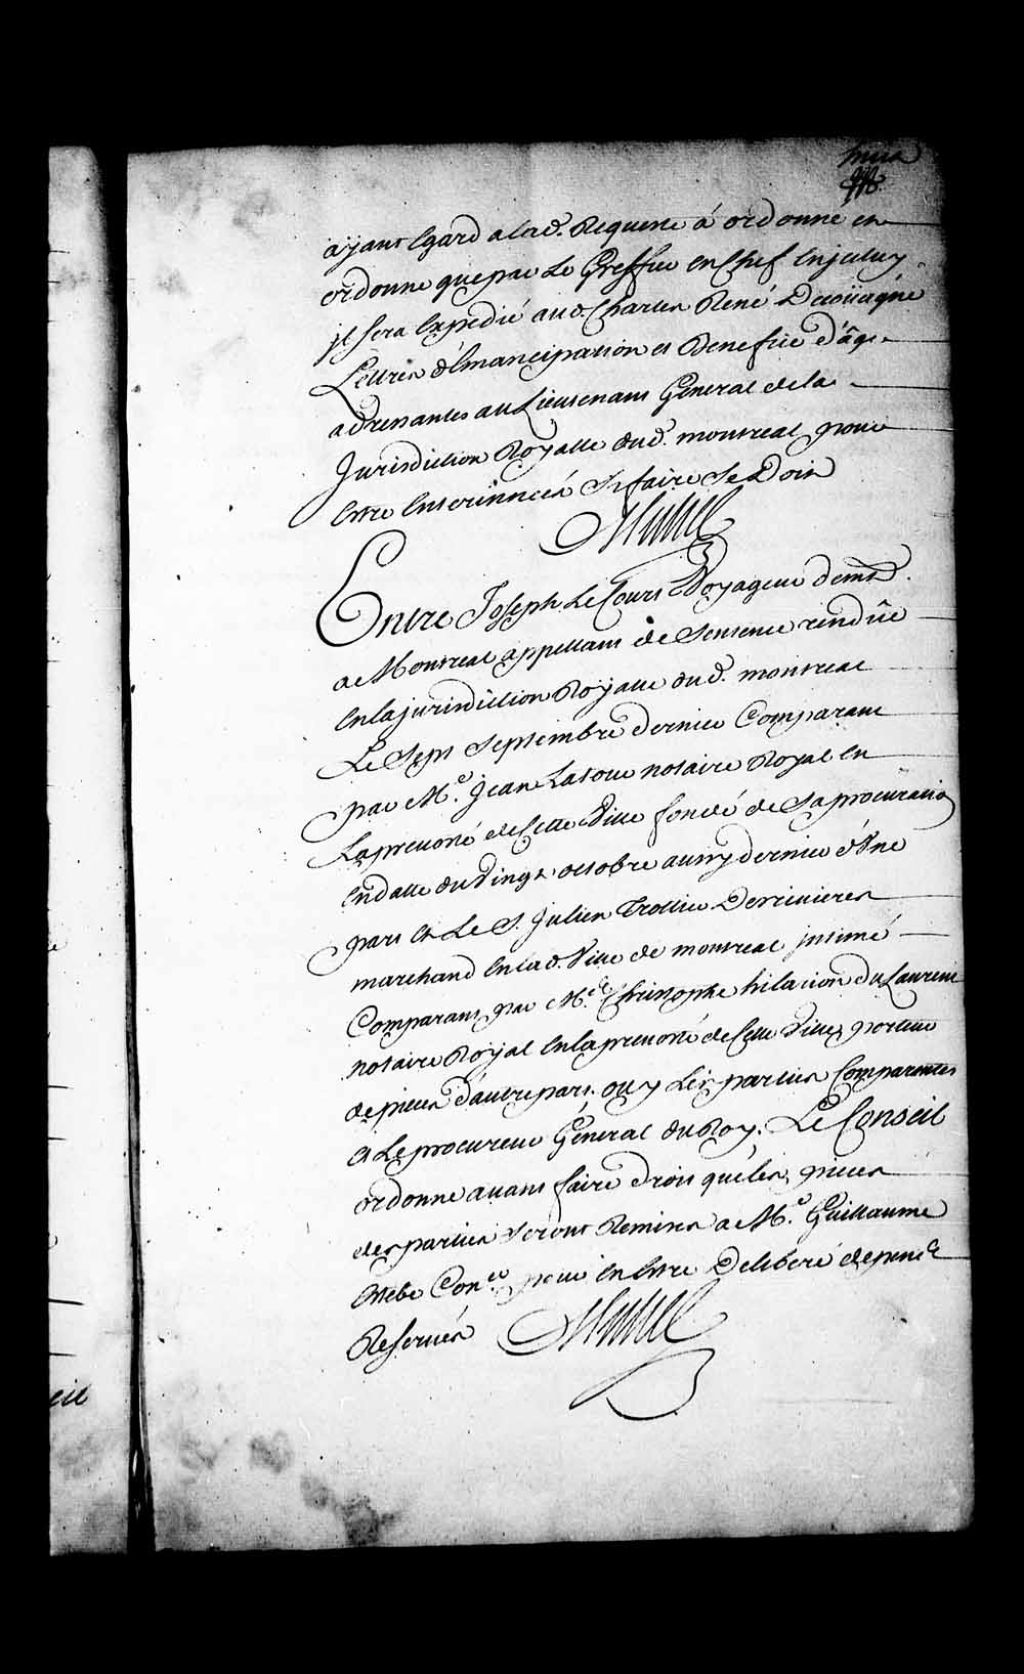 huit
ayant Egard a lad. Requeste á ordonné et
ordonne que par Le Greffier en Chef Enjceluy
jl sera Expedié aud. Charles René Decoüagne
Lettres d'Emancipation et Benefice d'âge
adressantes au Lieutenant General de la
Jurisdiction Royalle dud. montreal pour
Estre Enterinnées Se faire se Doit
Entre Joseph Le Cours Voyageur demt
a Montreal appellant de Sentence rendüe
En la jurisdiction Royalle dud. montreal
Le Sept Septembre dernier Comparant
par Me. Jean Latour notaire Royal en
La prevosté de Cette Ville fondé de Sa procuration
En datte du Vingt octobre aussy dernier d'Une
part Et Le S. Julien Trottier Desrivieres
marchand En lad. Ville de montreal jntimé
Comparant par Me. Christophe hilarion Du Laurent
notaire Royal En la prevosté de Cette Ville, porteur
de pieces d'autre part. ouy Les parties Comparantes
Et Le procureur Géneral du Roy. Le Conseil
ordonne avant faire droit que les pieces
des parties seront Remises a Me. Guillaume
Estebe Coner. pour En Estre Deliberé depens
Reservés
eil